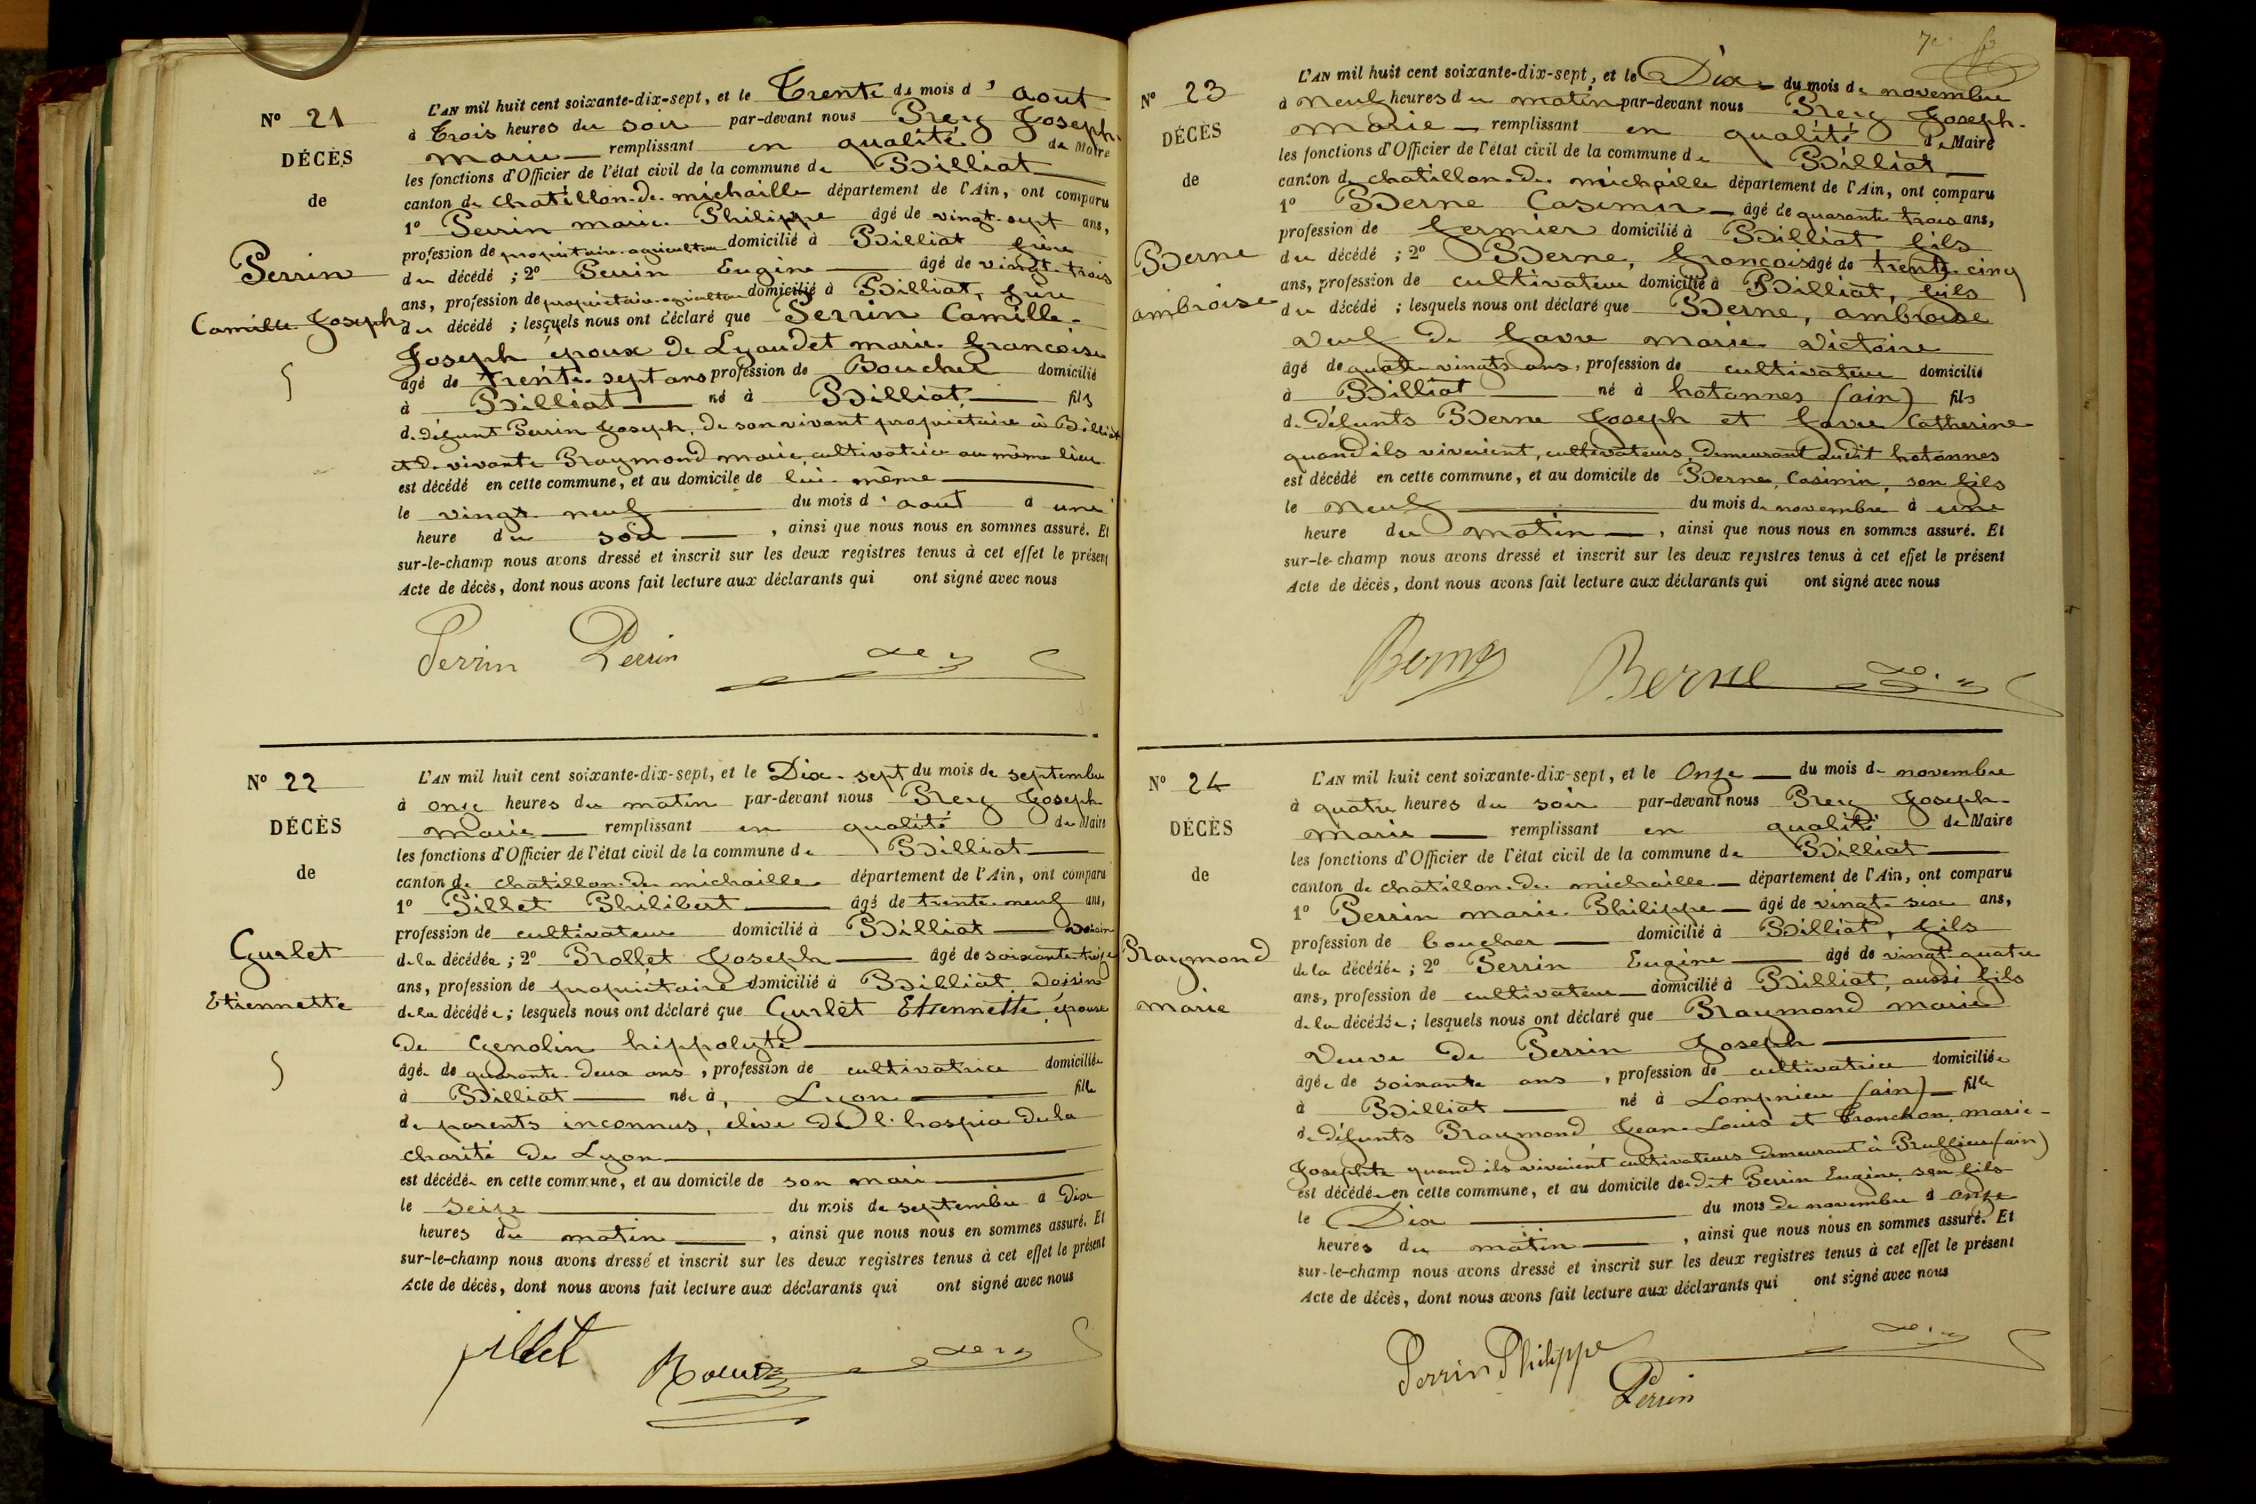 N° 21
DÉCÈS
de
Perrin
Camille Joseph
L'AN mil huit cent soixante-dix-sept, et le Trente du mois d'aout
à Trois heures du soir par-devant nous Prey Joseph
marie remplissant en qualité de Maire
les fonctions d'Officier de l'état civil de la commune de Billiat
canton de chatillon-de-michaille département de l'Ain, ont comparu
1° Perrin marie Philippe âgé de vingt-sept ans,
profession de propriétaire-agriculteur domicilié à Billiat frère
du décédé ; 2° Perrin Eugène âgé de vingt-trois
ans, profession de propriétaire-agriculteur domicilié à Billiat, frère
du décédé ; lesquels nous ont déclaré que Perrin Camille-
Joseph époux de Lyaudet marie françoise
âgé de trente-sept ans profession de Boucher domicilié
à Billiat né à Billiat, fils
de défunt Perrin Joseph, de son vivant propriétaire à Billiat
et de vivante Raymond marie, cultivatrice au même lieu
est décédé en cette commune, et au domicile de lui-même
le vingt-neuf du mois d'aout à une
heure du soir, ainsi que nous nous en sommes assuré. Et
sur-le-champ nous avons dressé et inscrit sur les deux registres tenus à cet effet le présent
Acte de décès, dont nous avons fait lecture aux déclarants qui ont signé avec nous
Perrin Perrin
N° 22
DÉCÈS
de
Gurlet
Etiennette
L'AN mil huit cent soixante-dix-sept, et le Dix-sept du mois de septembre
à onze heures du matin par-devant nous Prey Joseph
marie remplissant en qualité de Maire
les fonctions d'Officier de l'état civil de la commune de Billiat
canton de chatillon-de-michaille département de l'Ain, ont comparu
1° Pillet Philibert âgé de trente-neuf ans,
profession de cultivateur domicilié à Billiat voisin
de la décédée ; 2° Rollet Joseph âgé de soixante-treize
ans, profession de propriétaire domicilié à Billiat, voisin
de la décédée ; lesquels nous ont déclaré que Gurlet Etiennette, épouse
de Genolin hippolyte
âgée de quarante-deux ans, profession de cultivatrice domiciliée
à Billiat née à, Lyon fille
de parents inconnus, élève de l'hospice de la
charité de Lyon
est décédée en cette commune, et au domicile de son mari
le seize du mois de septembre à dix
heures du matin, ainsi que nous nous en sommes assuré. Et
sur-le-champ nous avons dressé et inscrit sur les deux registres tenus à cet effet le présent
Acte de décès, dont nous avons fait lecture aux déclarants qui ont signé avec nous
pillet
N° 23
DÉCÈS
de
Berne
ambroise
L'AN mil huit cent soixante-dix-sept, et le Dix du mois de novembre
à neuf heures du matin par-devant nous Prey Joseph-
marie remplissant en qualité de Maire
les fonctions d'Officier de l'état civil de la commune de Billiat
canton de chatillon-de-michaille département de l'Ain, ont comparu
1° Berne Casimir âgé de quarante-trois ans,
profession de fermier domicilié à Billiat, fils
du décédé ; 2° Berne, françois âgé de trente-cinq
ans, profession de cultivateur domicilié à Billiat, fils
du décédé ; lesquels nous ont déclaré que Berne, ambroise
veuf de favre marie victoire
âgé de quatre-vingts ans, profession de cultivateur domicilié
à Billiat né à hotonnes (ain) fils
de défunts Berne Joseph et favre Catherine
quand ils vivaient, cultivateurs, demeurant audit hotonnes
est décédé en cette commune, et au domicile de Berne, Casimir, son fils
le neuf du mois de novembre à une
heure du matin, ainsi que nous nous en sommes assuré. Et
sur-le-champ nous avons dressé et inscrit sur les deux registres tenus à cet effet le présent
Acte de décès, dont nous avons fait lecture aux déclarants qui ont signé avec nous
Berne Berne
N° 24
DÉCÈS
de
Raymond
marie
L'AN mil huit cent soixante-dix-sept, et le Onze du mois de novembre
à quatre heures du soir par-devant nous Prey Joseph-
marie remplissant en qualité de Maire
les fonctions d'Officier de l'état civil de la commune de Billiat
canton de chatillon-de-michaille département de l'Ain, ont comparu
1° Perrin marie-Philippe âgé de vingt-six ans,
profession de boucher domicilié à Billiat, fils
de la décédée ; 2° Perrin Eugène âgé de vingt-quatre
ans, profession de cultivateur domicilié à Billiat, aussi fils
de la décédée ; lesquels nous ont déclaré que Raymond marie
veuve de Perrin Joseph
âgée de soixante ans, profession de cultivatrice domiciliée
à Billiat né à Lompnieu (ain) fille
de défunts Raymond Jean-Louis et Tronchon, marie-
Josephte quand ils vivaient cultivateurs demeurant à Ruffieu (ain)
est décédée en cette commune, et au domicile dudit Perrin Eugène, son fils
le Dix du mois de novembre à onze
heures du matin, ainsi que nous nous en sommes assuré. Et
sur-le-champ nous avons dressé et inscrit sur les deux registres tenus à cet effet le présent
Acte de décès, dont nous avons fait lecture aux déclarants qui ont signé avec nous
Perrin Philippe
Perrin